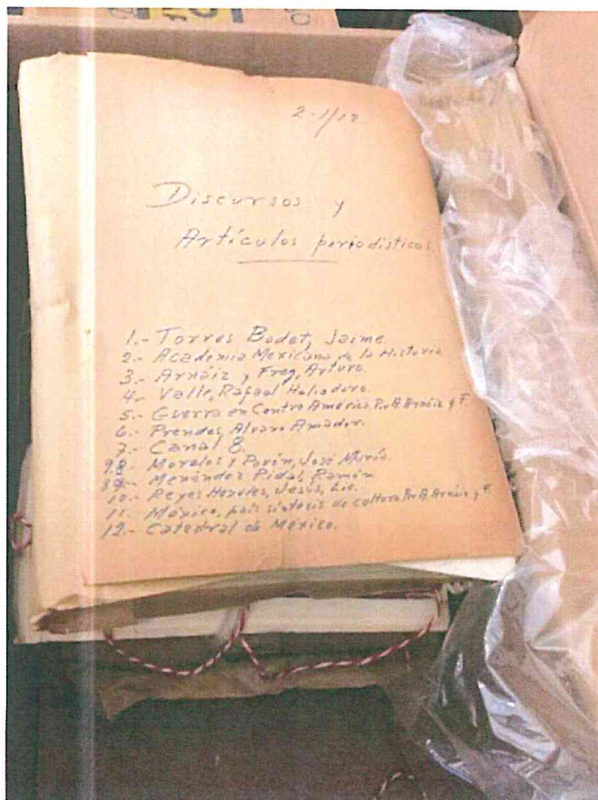 2-1/12
Discursos y
Artículos periodísticos
1.- Torres Bodet, Jaime.
2.- Academia Mexicana de la Historia
3.- Arnáiz y Freg, Arturo.
4.- Valle, Rafael Heliodoro.
5.- Guerra en Centro América. Por A. Arnáiz y F.
6.- Prendes, Alvaro Amador.
7.- Canal 8.
8.- Morelos y Pavón, José María.
9.- Menéndez Pidal, Ramón
10.- Reyes Heroles, Jesús, Lic.-
11.- México, país síntesis de cultura Por A. Arnáiz y F.
12.- Catedral de México.